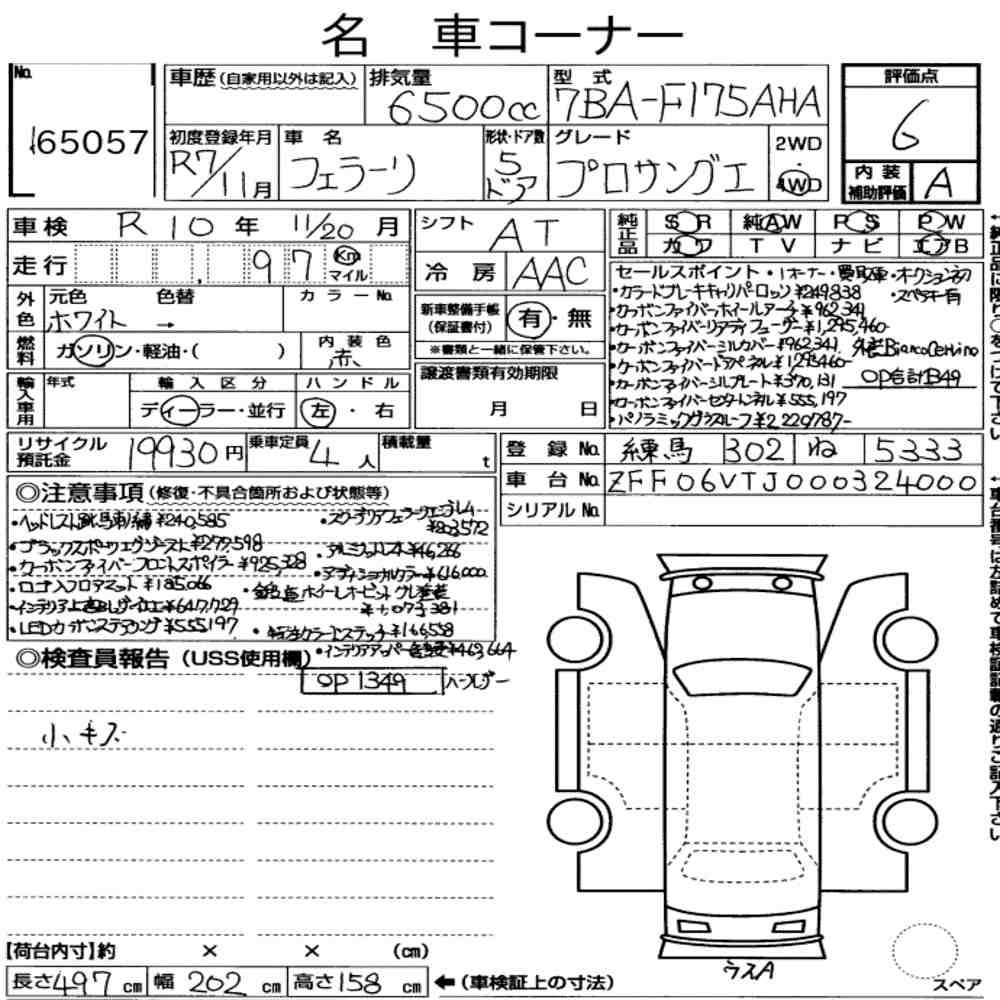 名 車コーナー
No.
165057
車歴(自家用以外は記入)
排気量
6500cc
型 式
7BA-F175AHA
評価点
6
初度登録年月
R7/11月
車 名
フェラーリ
形状・ドア数
5ドア
グレード
プロサングエ
2WD
・
4WD
内 装
補助評価
A
車検 R 10 年 11/20 月
シフト AT
純正品
S S R 純AW P S P W
カワ T V ナビ エアB
走行 97 Km
マイル
冷 房 AAC
外色
元色 色替 カラーNo.
ホワイト →
新車整備手帳
(保証書付)
有・無
※書類と一緒に保管下さい。
燃料
ガソリン・軽油・( )
内 装 色
赤
輸入車用
年式
輸 入 区 分
ディーラー・並行
ハ ン ド ル
左・右
譲渡書類有効期限
月 日
セールスポイント ・1オーナー・
・スペアキー有
・カラードブレーキキャリパーロッソ¥249,838
・カーボンファイバーホイールアーチ¥962,341
・カーボンファイバーリアディフューザー¥1,295,460-
・カーボンファイバーシルカバー¥962,341 外装BiancoCervino
・カーボンファイバードアパネル¥1,295,460-
OP合計B49
・カーボンファイバーシルプレート¥370,131
・カーボンファイバーセンタートンネル¥555,197
・パノラミックガラスルーフ¥2,220,787-
リサイクル
預託金
19930円
乗車定員
4 人
積載量
t
登 録 No. 練馬 302 ね 5333
車 台 No. ZFF06VTJ000324000
シリアル No.
◎注意事項(修復・不具合箇所および状態等)
・ヘッドレスト跳馬刺繍¥240,585
・スクーデリアフェラーリエンブレム
¥203,572
・カーボンファイバーフロントスポイラー¥925,328
・アルミフットレスト¥46,266
・ロゴ入フロアマット¥185,066
・アディショナルカラー¥616,000
¥1,073,381
・LEDカーボンステアリング¥555,197
・特注カラードステッチ¥166,558
◎検査員報告(USS使用欄)
OP1349
ハーフレザー
小キズ
【荷台内寸】約 × × (cm)
長さ497 cm 幅 202 cm 高さ158 cm ←(車検証上の寸法)
ウスA
スペア